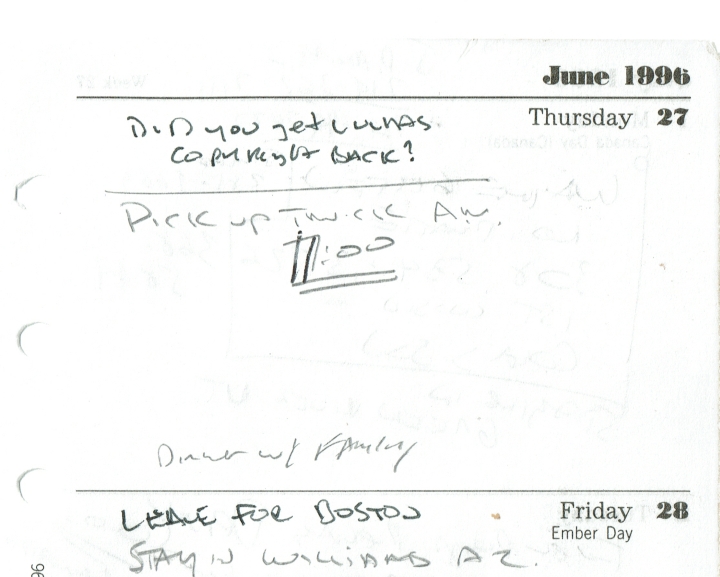 June 1996
Thursday 27
DiD you get LUCHAS
COPYRIGHT BACK?
PICK UP TRUCK AM.
11:00
Dinner w/ FAmily
LEAVE FOR BOSTON
Friday 28
Ember Day
STAY IN WILLIAMS AZ.
96